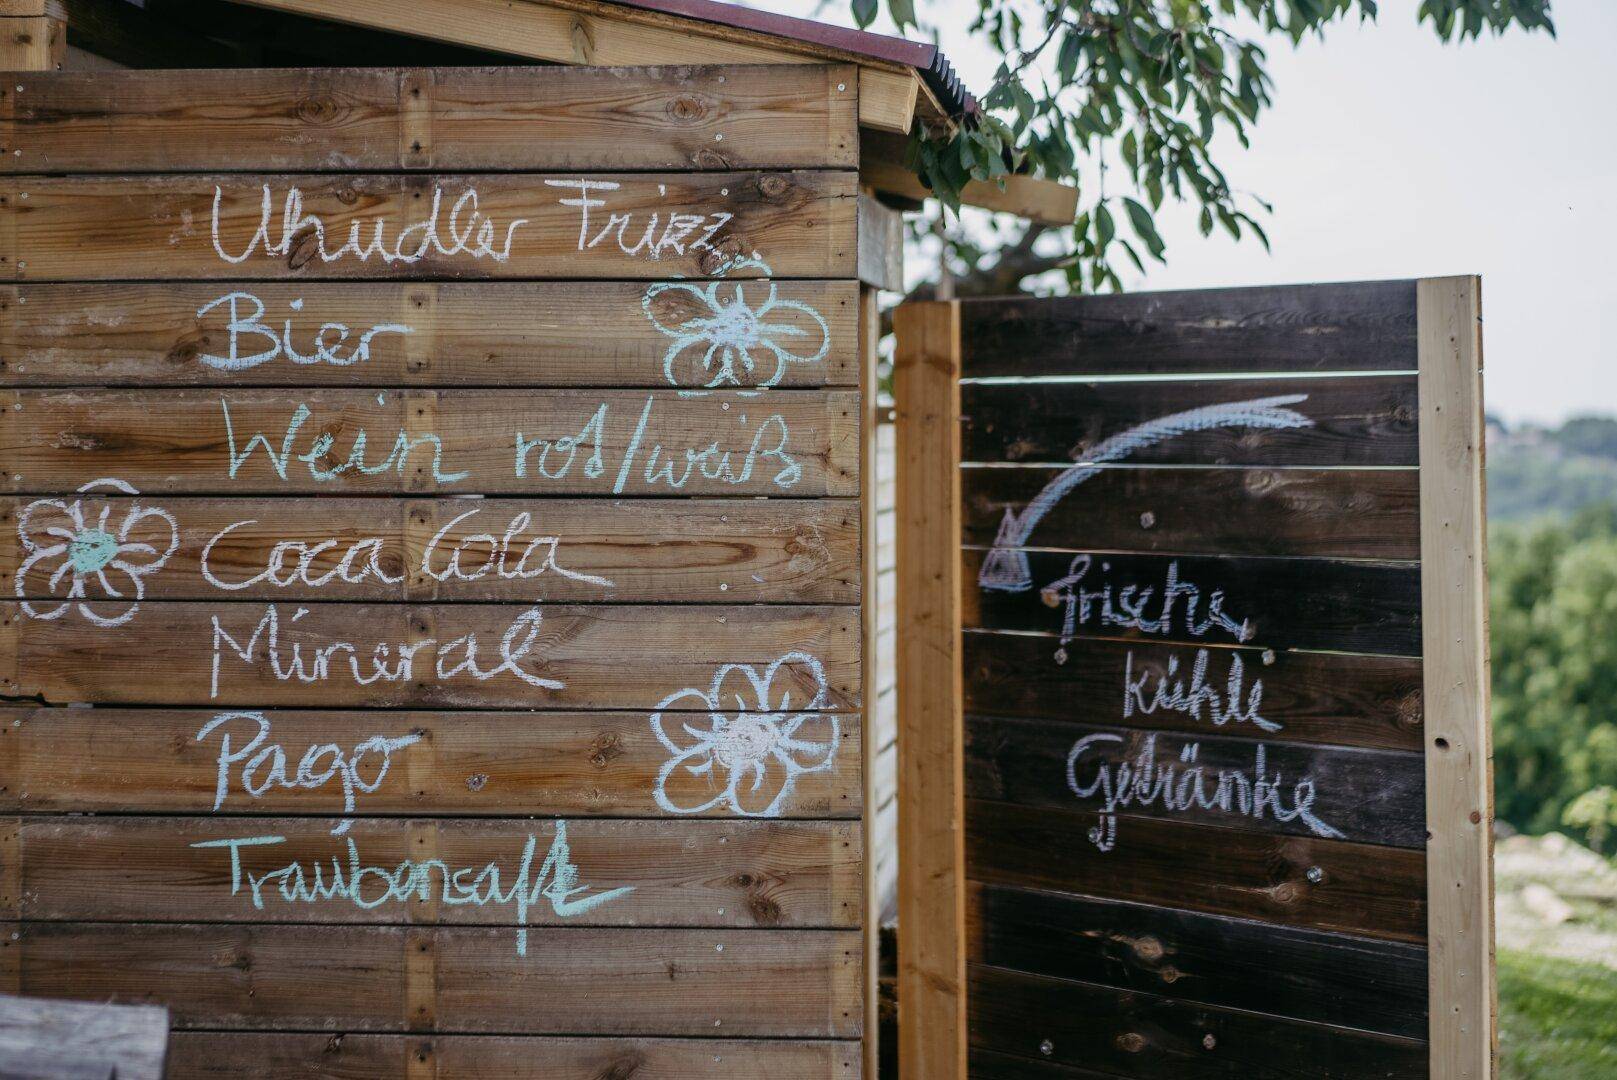 Uhudler Frizz.
Bier
Wein rot/weiß
Coca Cola
Mineral
Pago
Traubensaft
frische
kühle
Getränke